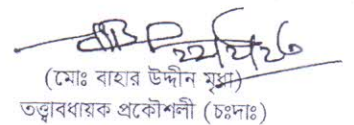 (মোঃ বাহার উদ্দীন মৃধা)
তত্ত্বাবধায়ক প্রকৌশলী (চঃদাঃ)